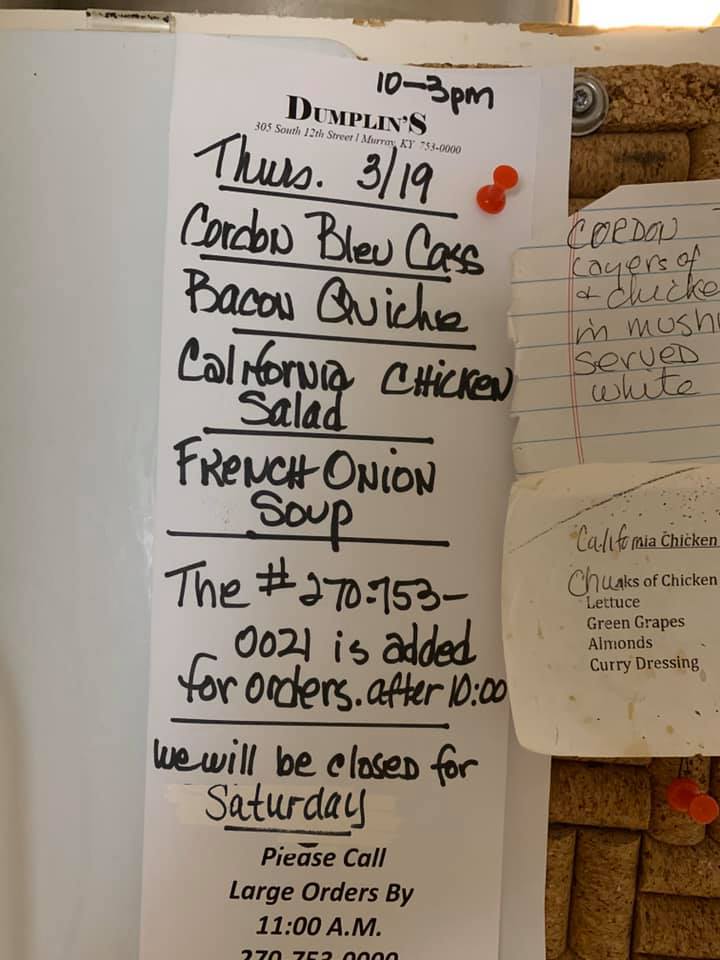 10-3pm
DUMPLIN'S
305 South 12th Street | Murray, KY 753-0000
Thurs. 3/19
Cordon Bleu Cass
Bacon Quiche
California CHICKEN
Salad
FRENCH ONION
Soup
The # 270-753-
0021 is added
for orders. after 10:00
We will be closed for
Saturday
Please Call
Large Orders By
11:00 A.M.
270 753 0000
CORDON
Layers of
& chicke
in mush
served
white
California Chicken
Chunks of Chicken
Lettuce
Green Grapes
Almonds
Curry Dressing